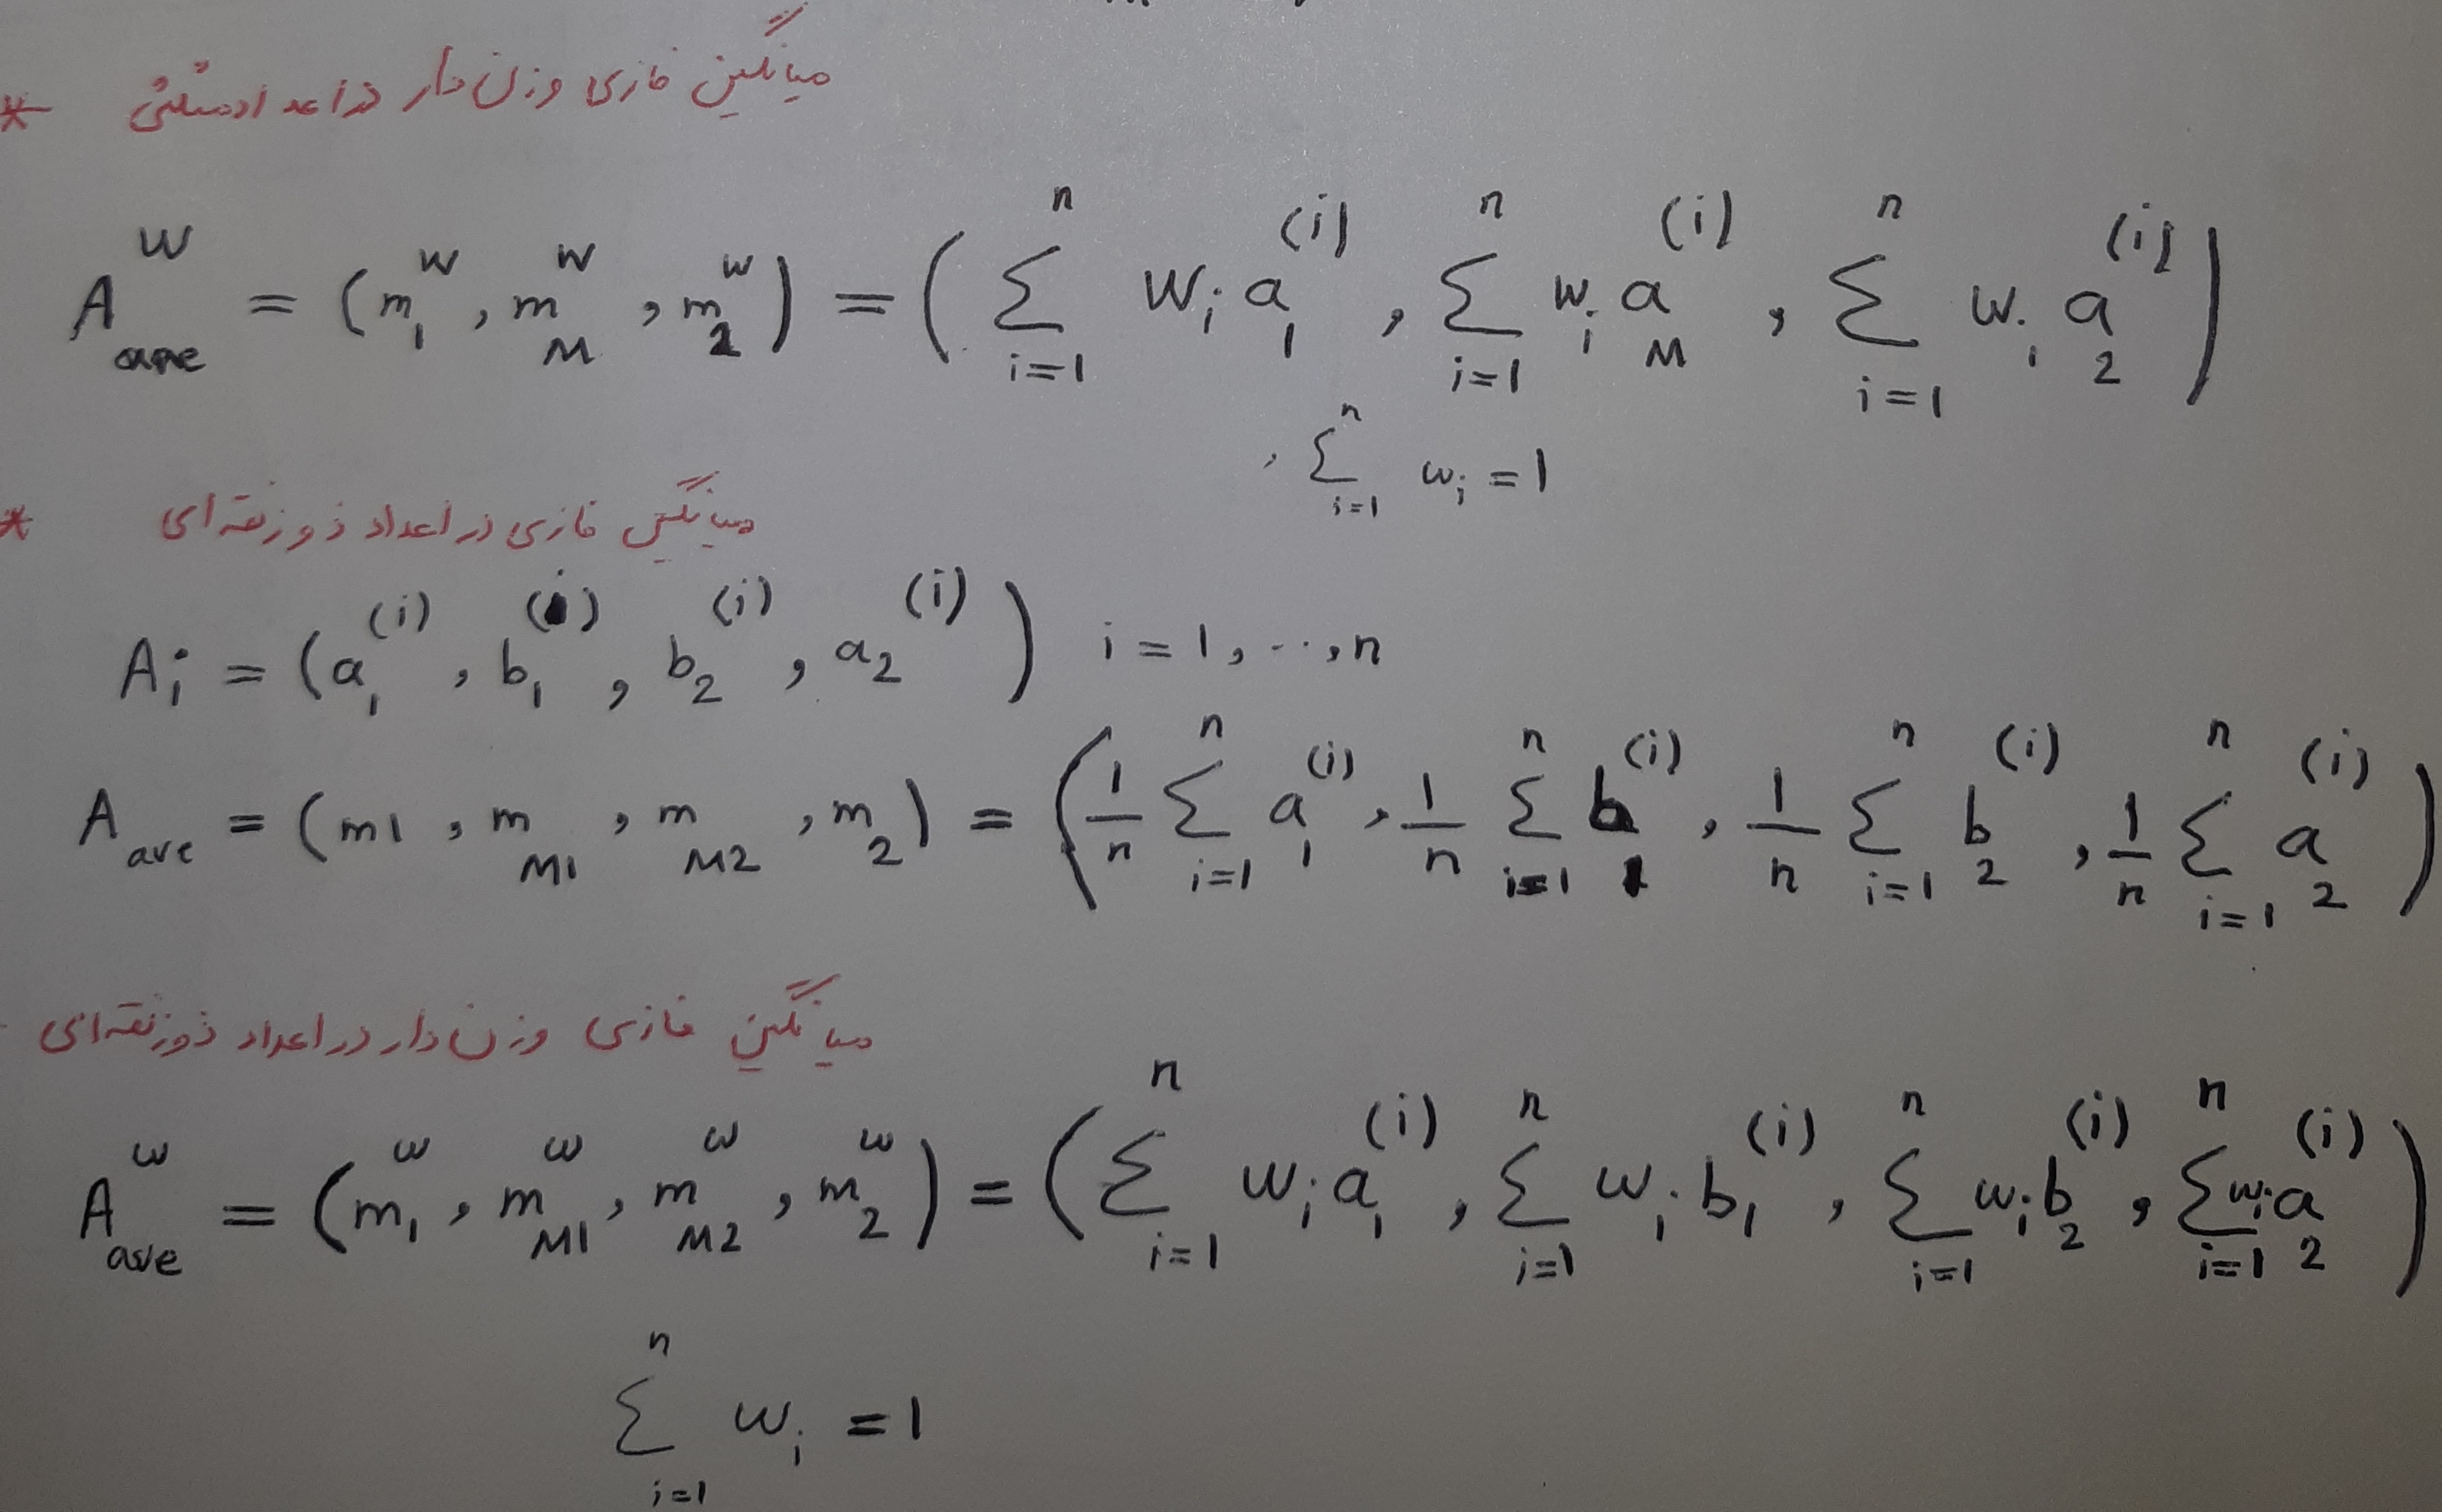 * میانگین فازی وزن دار در اعداد مثلثی
A_ave^w = (m_1^w , m_M^w , m_2^w) = (∑_{i=1}^n w_i a_1^(i) , ∑_{i=1}^n w_i a_M^(i) , ∑_{i=1}^n w_i a_2^(i))
, ∑_{i=1}^n w_i = 1
* میانگین فازی در اعداد ذوزنقه ای
A_i = (a_1^(i) , b_1^(i) , b_2^(i) , a_2^(i)) i = 1, ..., n
A_ave = (m1 , m_M1 , m_M2 , m_2) = (1/n ∑_{i=1}^n a_1^(i) , 1/n ∑_{i=1}^n b_1^(i) , 1/n ∑_{i=1}^n b_2^(i) , 1/n ∑_{i=1}^n a_2^(i))
میانگین فازی وزن دار در اعداد ذوزنقه ای
A_ave^w = (m_1^w , m_M1^w , m_M2^w , m_2^w) = (∑_{i=1}^n w_i a_1^(i) , ∑_{i=1}^n w_i b_1^(i) , ∑_{i=1}^n w_i b_2^(i) , ∑_{i=1}^n w_i a_2^(i))
∑_{i=1}^n w_i = 1